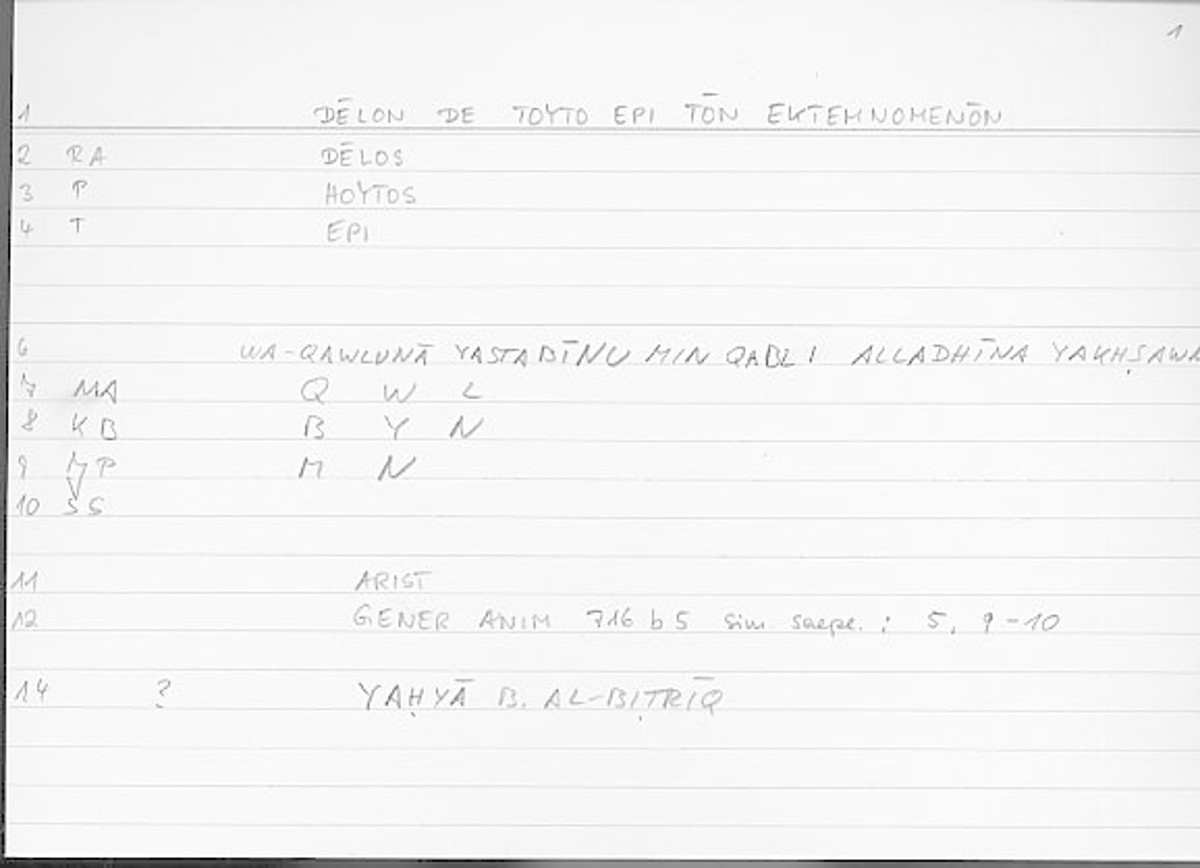 1
1 DĒLON DE TOYTO EPI TŌN EKTEMNOMENŌN
2 RA DĒLOS
3 P HOYTOS
4 T EPI
6 WA-QAWLUNĀ YASTABĪNU MIN QABLI ALLADHĪNA YAKHṢAWN
7 MA Q W L
8 KB B Y N
9 NP M N
10 SS
11 ARIST
12 GENER ANIM 716 b 5 sim. saepe. ; 5, 9-10
14 ? YAḤYĀ B. AL-BIṬRĪQ